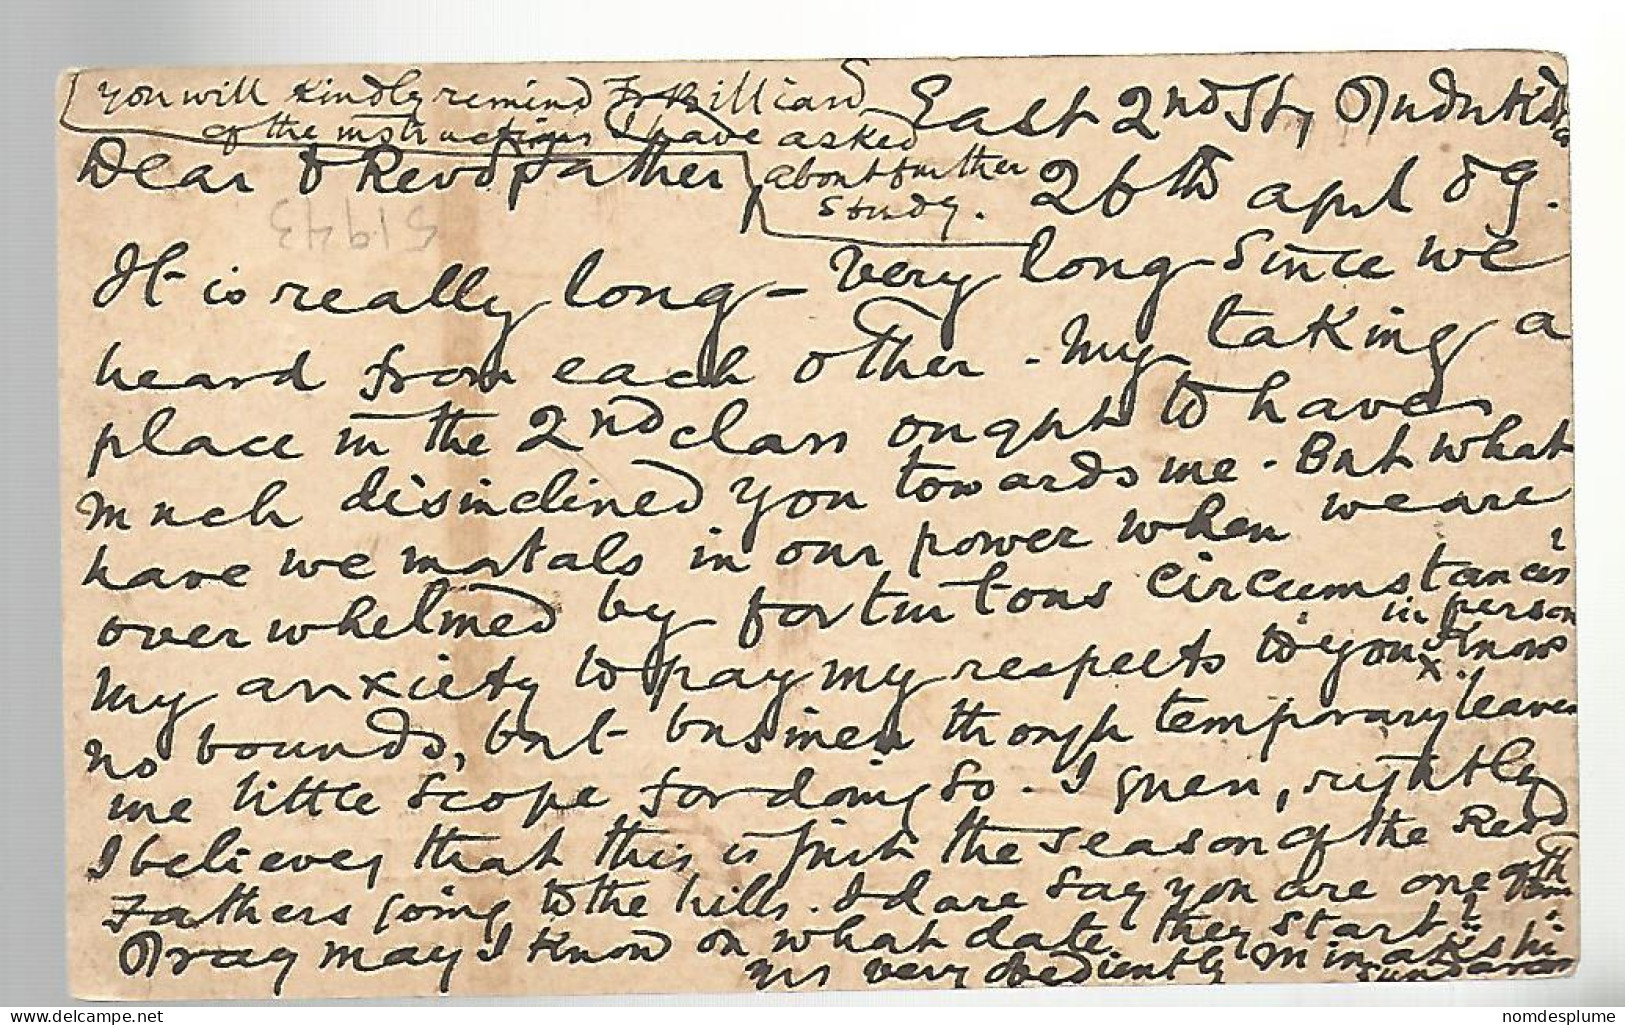 you will kindly remind Fr Billiard
of the instructions I have asked
about further
study.
East 2nd St,
26th april 89.
Dear & Revd father
51943
It is really long – very long since we
heard from each other - My taking a
place in the 2nd class ought to have
much disinclined you towards me - But what
have we mortals in our power when we are
over whelmed by fortuitous circumstances?
in person
My anxiety to pay my respects to you x know
no bounds, but business though temporary leaves
me little scope for doing so - I guess, rightly
I believe, that this is just the season of the Revd
Fathers going to the hills. I dare say you are one of them
Pray may I know on what date they start?
yrs very obediently Minakshi
Sundaram
nomdesplume
www.delcampe.net